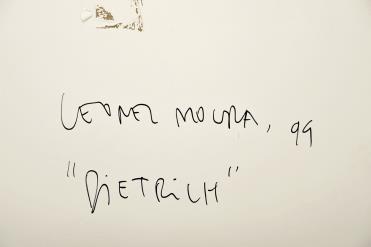 LEONEL MOURA, 99
"DIETRICH"